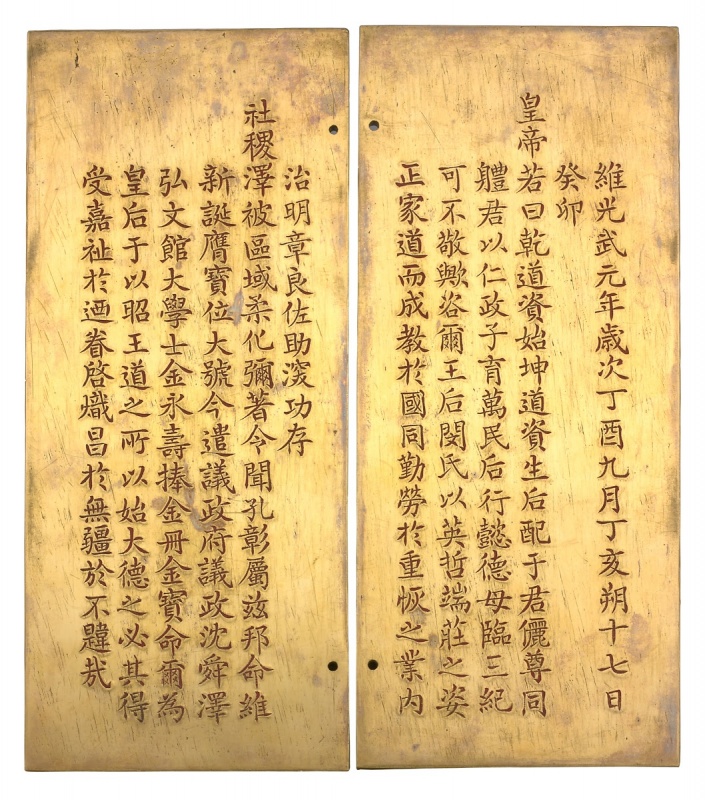 維光武元年歲次丁酉九月丁亥朔十七日
癸卯
皇帝若曰乾道資始坤道資生后配于君儷尊同
軆君以仁政子育萬民后行懿德母臨三紀
可不敬歟咨爾王后閔氏以英哲端莊之姿
正家道而成教於國同勤勞於重恢之業內
治明章良佐助深功存
社稷澤被區域柔化彌著令聞孔彰屬玆邦命維
新誕膺寶位大號今遣議政府議政沈舜澤
弘文館大學士金永壽捧金冊金寶命爾為
皇后于以昭王道之所以始大德之必其得
受嘉祉於迺眷啓熾昌於無疆於不韙㢤